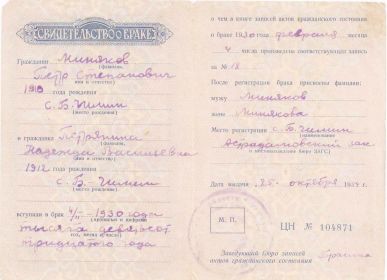 СВИДЕТЕЛЬСТВО о БРАКЕ
Гражданин Миняков
(фамилия,
Петр Степанович
имя и отчество)
1910 года рождения
с. Б-Чимин
(место рождения)
и гражданка Петряшина
(фамилия,
Надежда Васильевна
имя и отчество)
1912 года рождения
с. Б-
(место рождения)
вступили в брак 4/II - 1930 года
(прописью и цифрами
тысяча девятьсот
год, месяц и число)
тридцатого года
о чем в книге записей актов гражданского состояния
о браке 1930 года февраля месяца
4 числа произведена соответствующая запись
за № 18
После регистрации брака присвоены фамилии:
мужу Миняков
жене Минякова
Место регистрации с. Б-Чимин
(наименование
и местонахождение бюро ЗАГС)
Дата выдачи „25" октября 1954 г.
М. П.
ЦН № 104871
Заведующий бюро записи
актов гражданского состояния